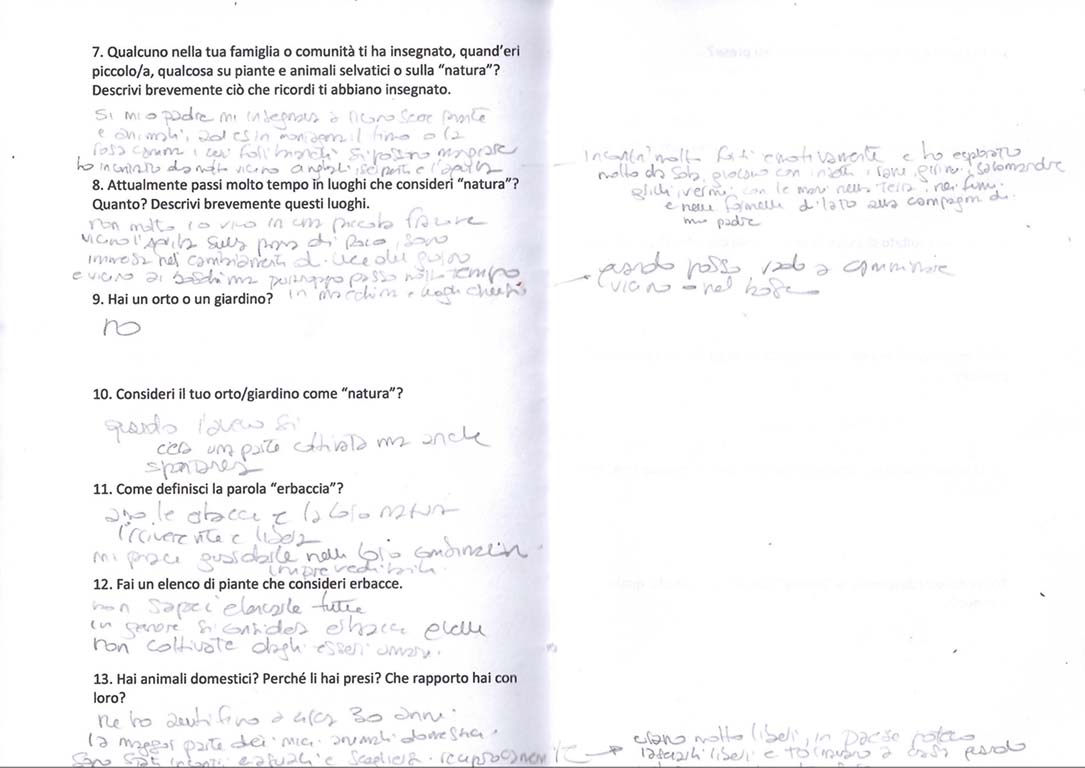 7. Qualcuno nella tua famiglia o comunità ti ha insegnato, quand'eri
piccolo/a, qualcosa su piante e animali selvatici o sulla “natura”?
Descrivi brevemente ciò che ricordi ti abbiano insegnato.
Si mio padre mi insegnava a riconoscere piante
e animali, ad es in montagna il timo o la
rosa canina i cui si possono mangiare
ho incontrato da molto vicino cinghiali, serpenti e l'aquila
incontri molto forti emotivamente e ho esplorato
molto da sola, giocavo con insetti, rane, girini, salamandre
grilli, vermi, con le mani nella terra, nei fiumi
e nelle di lato alla campagna di
mio padre
8. Attualmente passi molto tempo in luoghi che consideri “natura”?
Quanto? Descrivi brevemente questi luoghi.
non molto io vivo in una piccola frazione
vicino l'Aquila sulla piana di , sono
immersa nei cambiamenti di luce del giorno
e vicino ai boschi ma purtroppo passo molto tempo
in macchina e luoghi chiusi
quando posso, vado a camminare
(vicino - nel bosco
9. Hai un orto o un giardino?
no
10. Consideri il tuo orto/giardino come “natura”?
quando l'avevo si
c'era una parte coltivata ma anche
spontanea
11. Come definisci la parola “erbaccia”?
amo le erbacce e la loro natura
irriverente e libera
mi piace guardarle nelle loro
imprevedibili.
12. Fai un elenco di piante che consideri erbacce.
non saprei elencarle tutte
in genere si considera erbacce quelle
non coltivate dagli esseri umani.
13. Hai animali domestici? Perché li hai presi? Che rapporto hai con
loro?
Ne ho avuti fino a circa 30 anni.
la maggior parte dei miei animali domestici
sono stati incontri casuali e reciprocamente
erano molto liberi, in paese potevo
lasciarli liberi e tornavano a casa quando